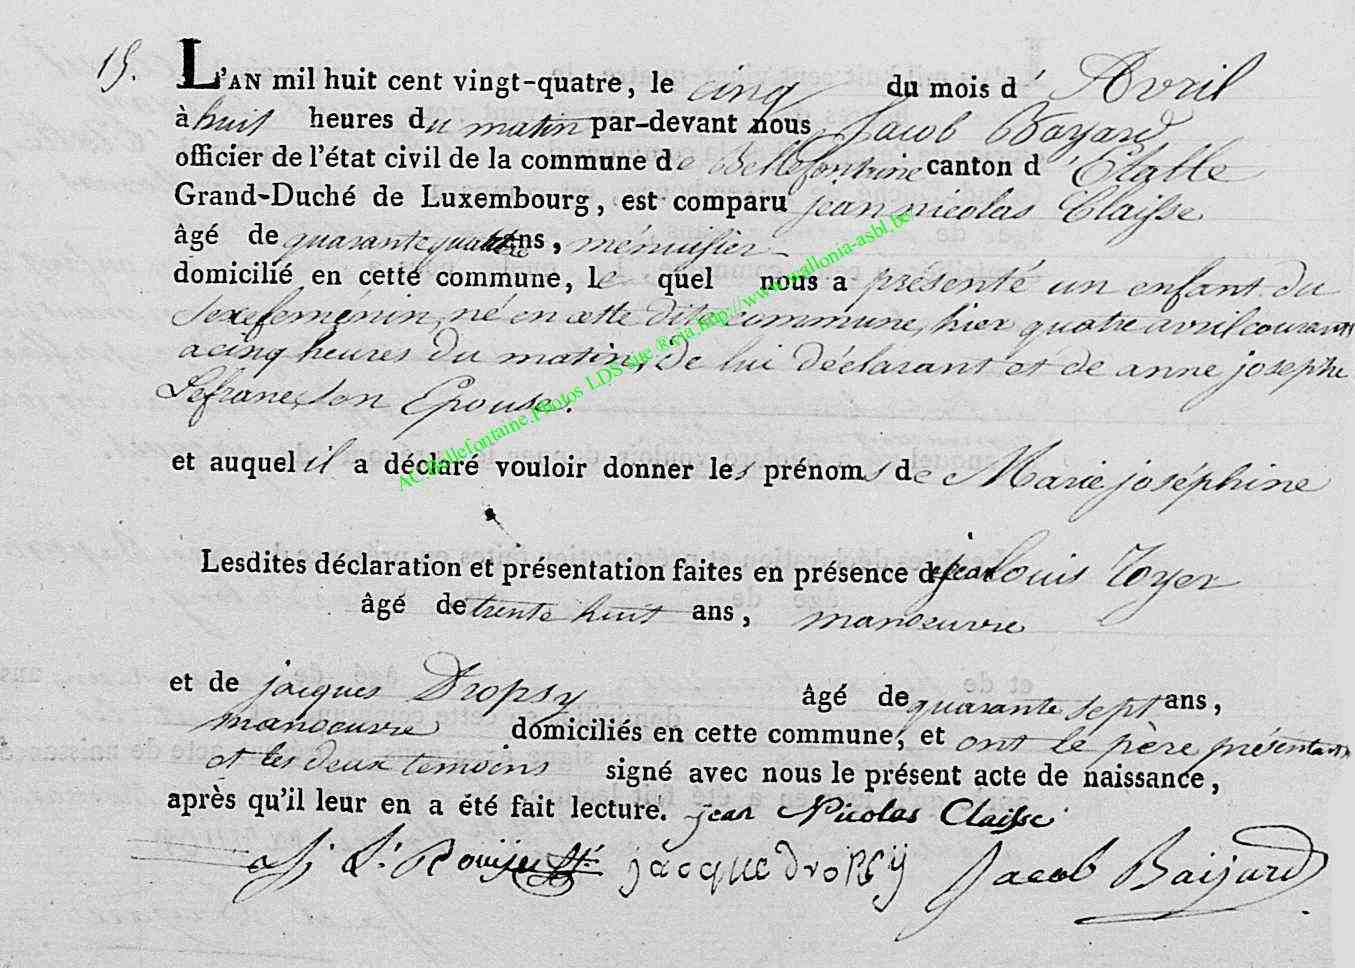 15.
L'AN mil huit cent vingt-quatre, le cinq du mois d'Avril
à huit heures du matin par-devant nous Jacob Bayard
officier de l'état civil de la commune de Bellefontaine canton d'Etalle
Grand-Duché de Luxembourg, est comparu jean nicolas Claisse
âgé de quarante quatre ans,ménuisier
domicilié en cette commune, le quel nous a présenté un enfant du
sexe feménin, né en cette dite commune, hier quatre avril courant,
a cinq heures du matin, de lui déclarant et de anne josephe
Lefranc, son Epouse.
et auquel il a déclaré vouloir donner les prénoms de Marie joséphine
Lesdites déclaration et présentation faites en présence de jean louis
âgé de trente huit ans, manoeuvre
et de jacques Dropsy âgé de quarante sept ans,
manoeuvre domiciliés en cette commune; et ont le père présentant
et les deux temoins signé avec nous le présent acte de naissance,
après qu'il leur en a été fait lecture. jean Nicolas Claisse
jacque Dropsy Jacob Baijard
AC Bellefontaine Photos LDS site Reja http://www.wallonia-asbl.be/